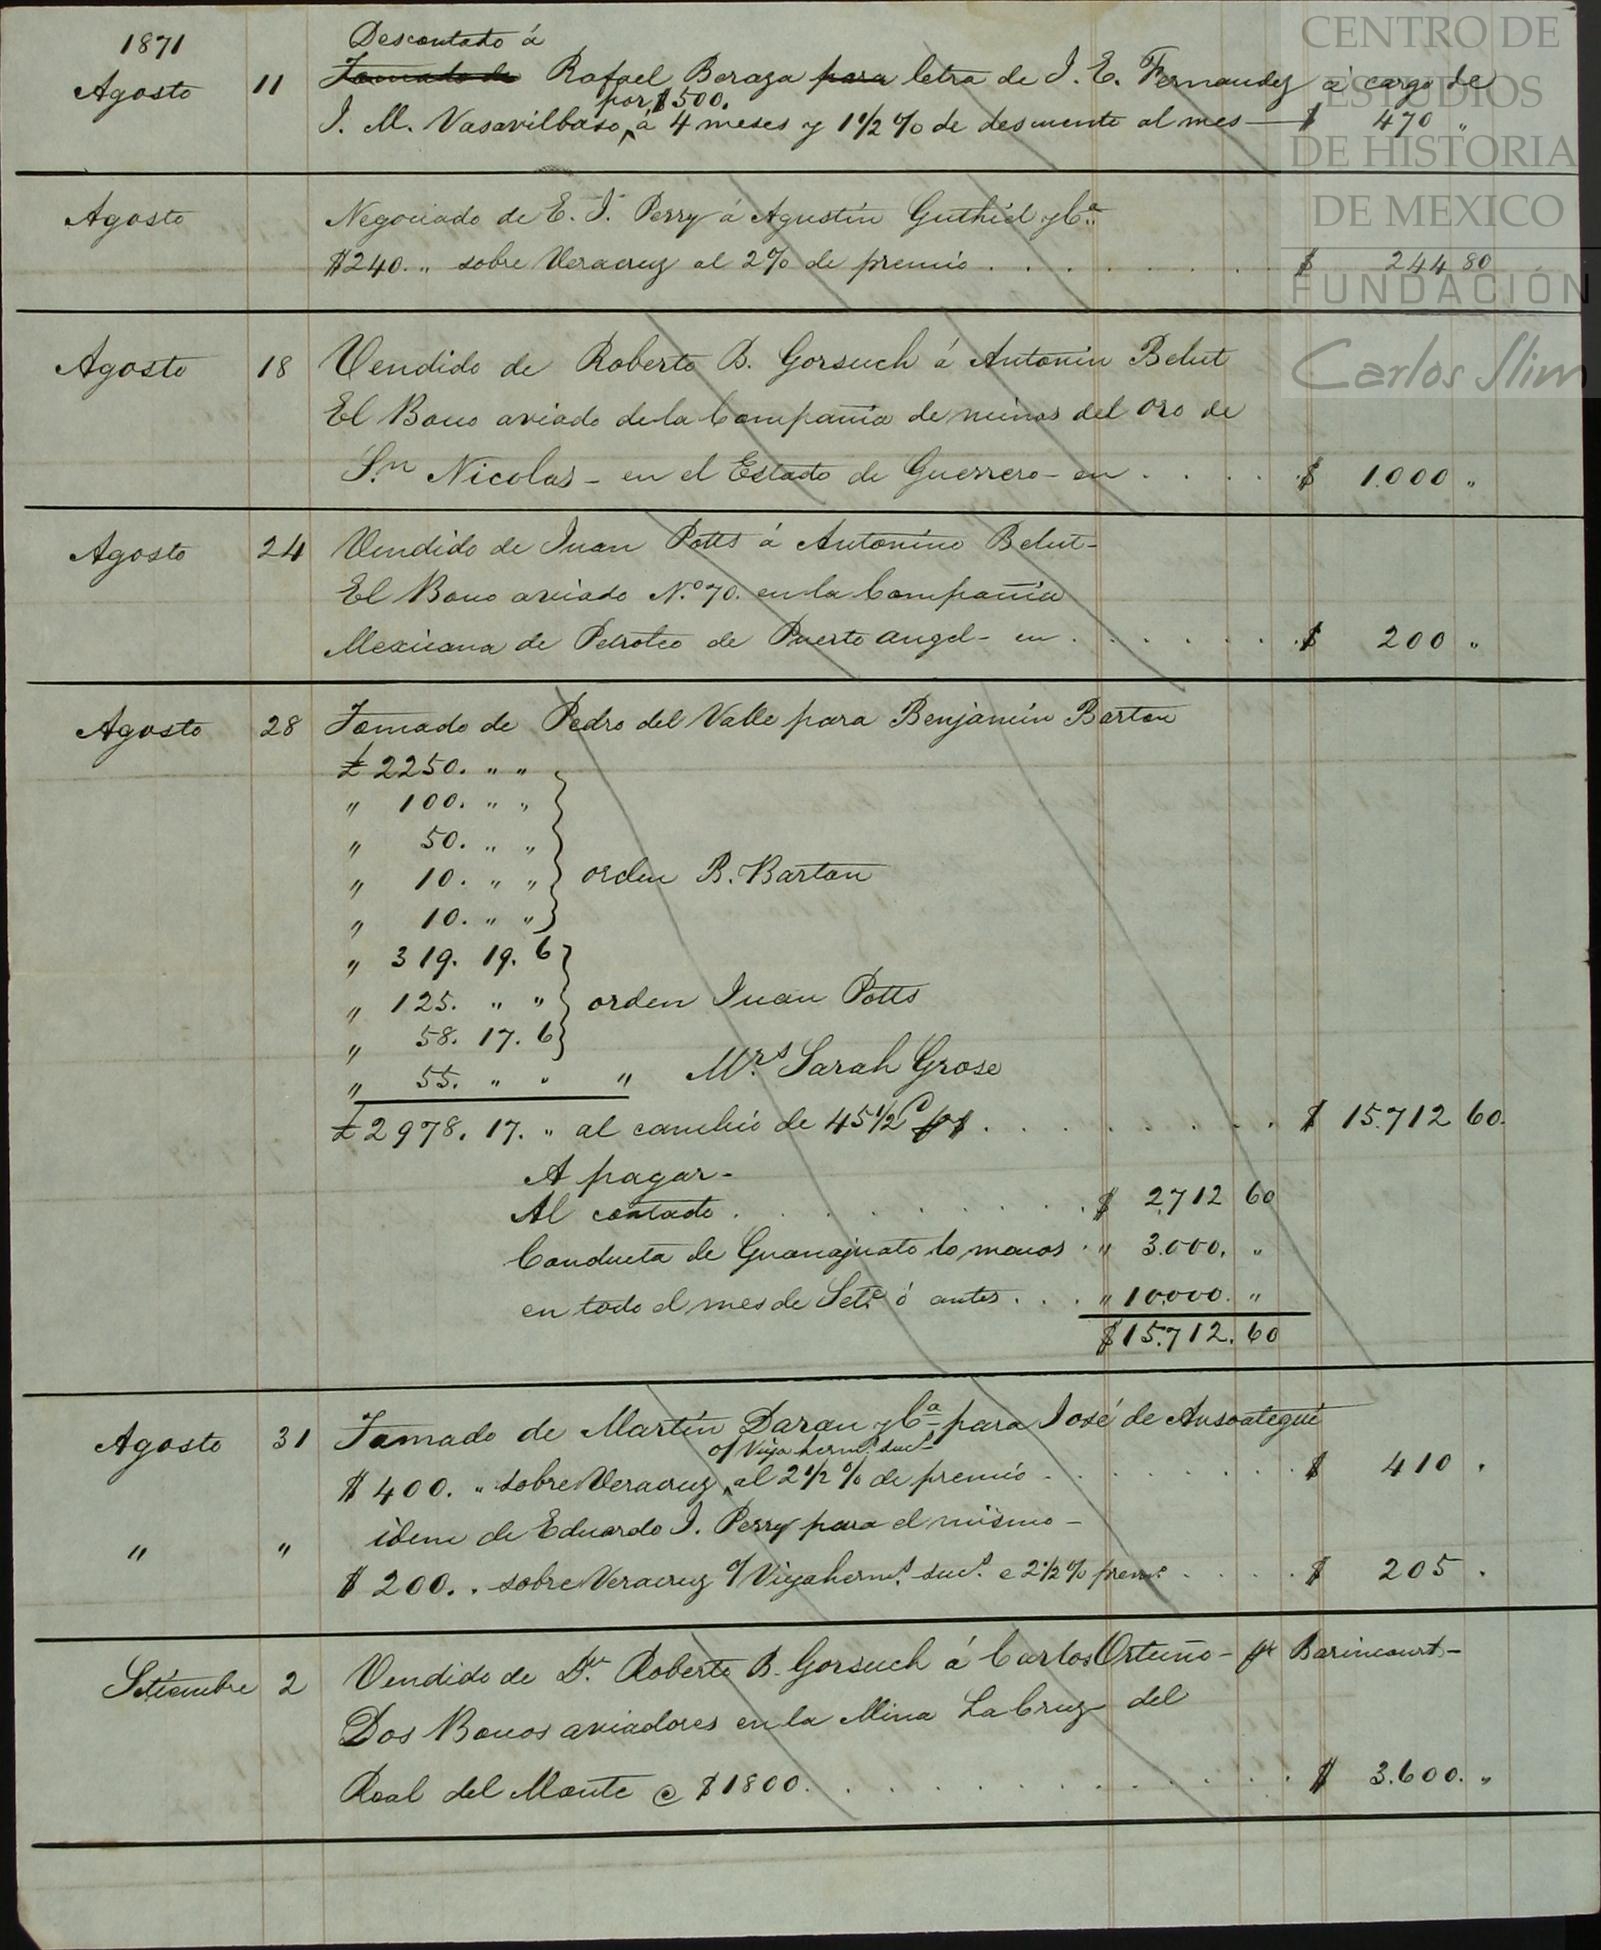 CENTRO DE
ESTUDIOS
DE HISTORIA
DE MEXICO
FUNDACIÓN
Carlos Slim
1871
Descontado á
Agosto 11 Tomado de Rafael Beraza para letra de J. E. Fernandez á cargo de
por $500.
J. M. Vasavilbaso, á 4 meses y 1 1/2 % de descuento al mes $ 470 "
Agosto Negociado de E. J. Perry á Agustin Guthiel y Ca.
$240. " sobre Veracruz al 2% de premio . . . . . . . . $ 244 80
Agosto 18 Vendido de Roberto B. Gorsuch á Antonin Belut
El Bono aviado de la Compañia de minas del Oro de
Sn. Nicolas - en el Estado de Guerrero - en . . . . . $ 1.000 "
Agosto 24 Vendido de Juan Potts á Antonino Belut -
El Bono aviado N.o 70. en la Compañia
Mexicana de Petroleo de Puerto angel - en . . . . . . . $ 200 "
Agosto 28 Tomado de Pedro del Valle para Benjamin Barton
£ 2250. " "
" 100. " "
" 50. " "
" 10. " " orden B. Barton
" 10. " "
" 319. 19. 6
" 125. " " orden Juan Potts
" 58. 17. 6
" 55. " " " Mrs. Sarah Grose
£ 2978. 17. " al cambio de 45 1/2 . . . . . . . . . $ 15.712 60.
A pagar -
Al contado . . . . . . . . . . $ 2,712 60
Conducta de Guanajuato lo menos . " 3.000. "
en todo el mes de Sete. ó antes . . . " 10.000. "
$15.712. 60
Agosto 31 Tomado de Martin Daran y Ca. para José de Ansoategui
o/ Viya herms. sucs.
$ 400. " sobre Veracruz, al 2 1/2 % de premio . . . . . . . . . $ 410 .
" " idem de Eduardo J. Perry para el mismo -
$ 200. . sobre Veracruz o/ Viya herms. sucs. e 2 1/2 % premo. . . . . . $ 205 .
Setiembre 2 Vendido de Dr. Roberto B. Gorsuch á Carlos Ortuño - Barincourt -
Dos Bonos aviadores en la Mina La Cruz del
Real del Monte @ $1800. . . . . . . . . . . . . $ 3.600. "